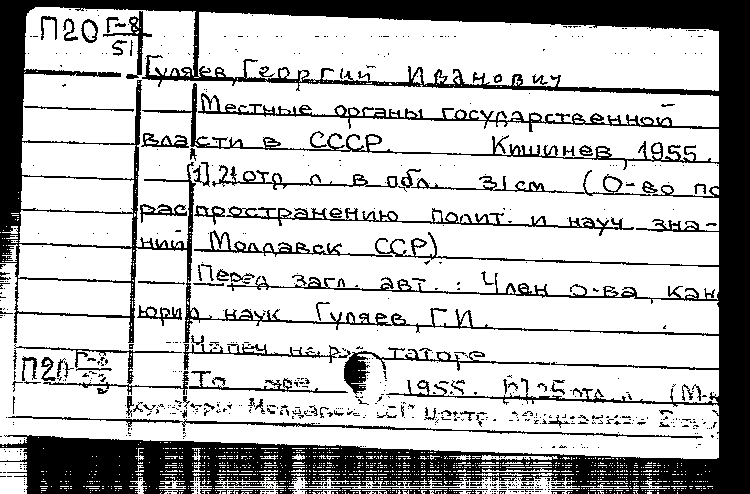 П20 Г-8/51
Гуляев, Георгий Иванович
Местные органы государственной
власти в СССР. Кишинев, 1955.
[1], 21 отд. л. в обл. 31 см. (О-во по
распространению полит. и науч. зна-
ний Молдавск. ССР)
Перед загл. авт.: Член о-ва, канд
юрид. наук Гуляев, Г.И.
Напеч. на ротаторе
П20 Г-8/53
То же. 1955. [2], 25 отд. л. (М-во
культуры Молдавск. ССР. Центр. лекционное